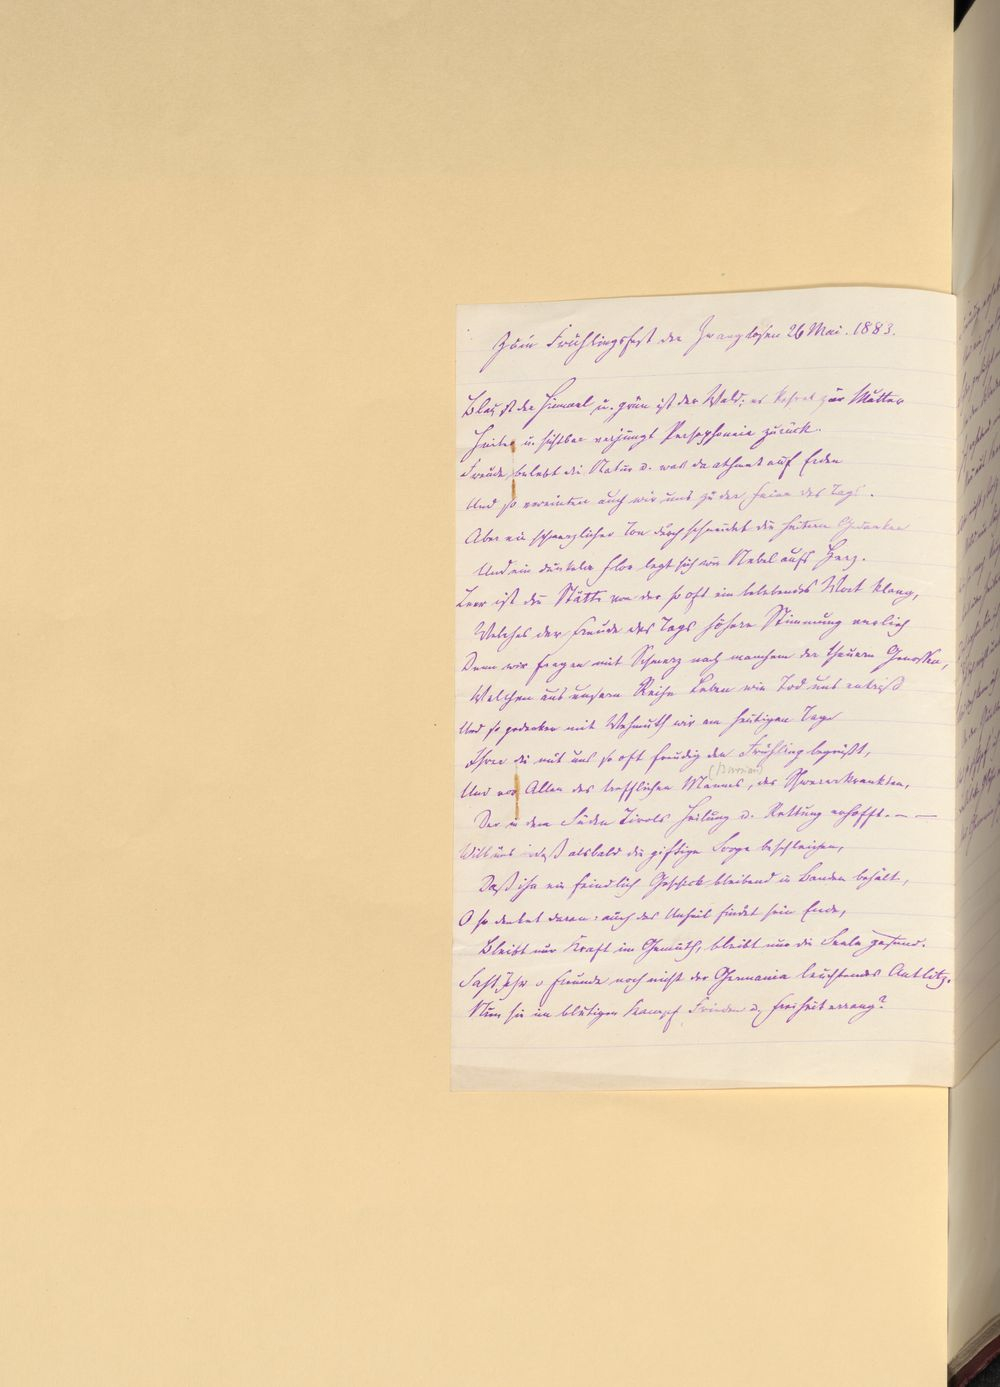 Zum Frühlingsfest der Zwanglosen 26 Mai. 1883.
Blau ist der Himmel u. grün ist der Wald; es kehret zur Mutter
Heiter u. sichtbar verjüngt Persephoneia zurück.
Freude belebt die Natur u. was da athmet auf Erden
Und so vereinten auch wir uns zu der Feier des Tags.
Aber ein schmerzlicher Ton durchschneidet die heitern Gedanken
Und ein dunkler Flor legt sich wie Nebel aufs Herz.
Leer ist die Stätte von der so oft ein belebendes Wort klang,
Welches der Freude des Tags höhere Stimmung verlieh
Denn wir fragen mit Schmerz nach manchem der theuern Genossen,
Welchen aus unsern Reihn Leben wie Tod uns entriß
Und so gedenken mit Wehmuth wir am heutigen Tage
Ihrer die mit uns so oft freudig den Frühling begrüßt,
Und vor Allen des trefflichen Mannes, des Schwererkrankten,
Der in dem Süden Tirols Heilung u. Rettung erhofft. — —
Will uns daß alsbald die giftige Sorge beschleichen,
Daß ihn ein feindlich Geschick bleibend in Banden behält,
O so denket daran: auch das Unheil findet sein Ende,
Bleibt nur Kraft im Gemüth, bleibt nur die Seele gesund.
Saht Ihr o Freunde noch nicht der Germania leuchtendes Antlitz,
Nun sie im blutigen Kampf Frieden u. Freiheit errang?